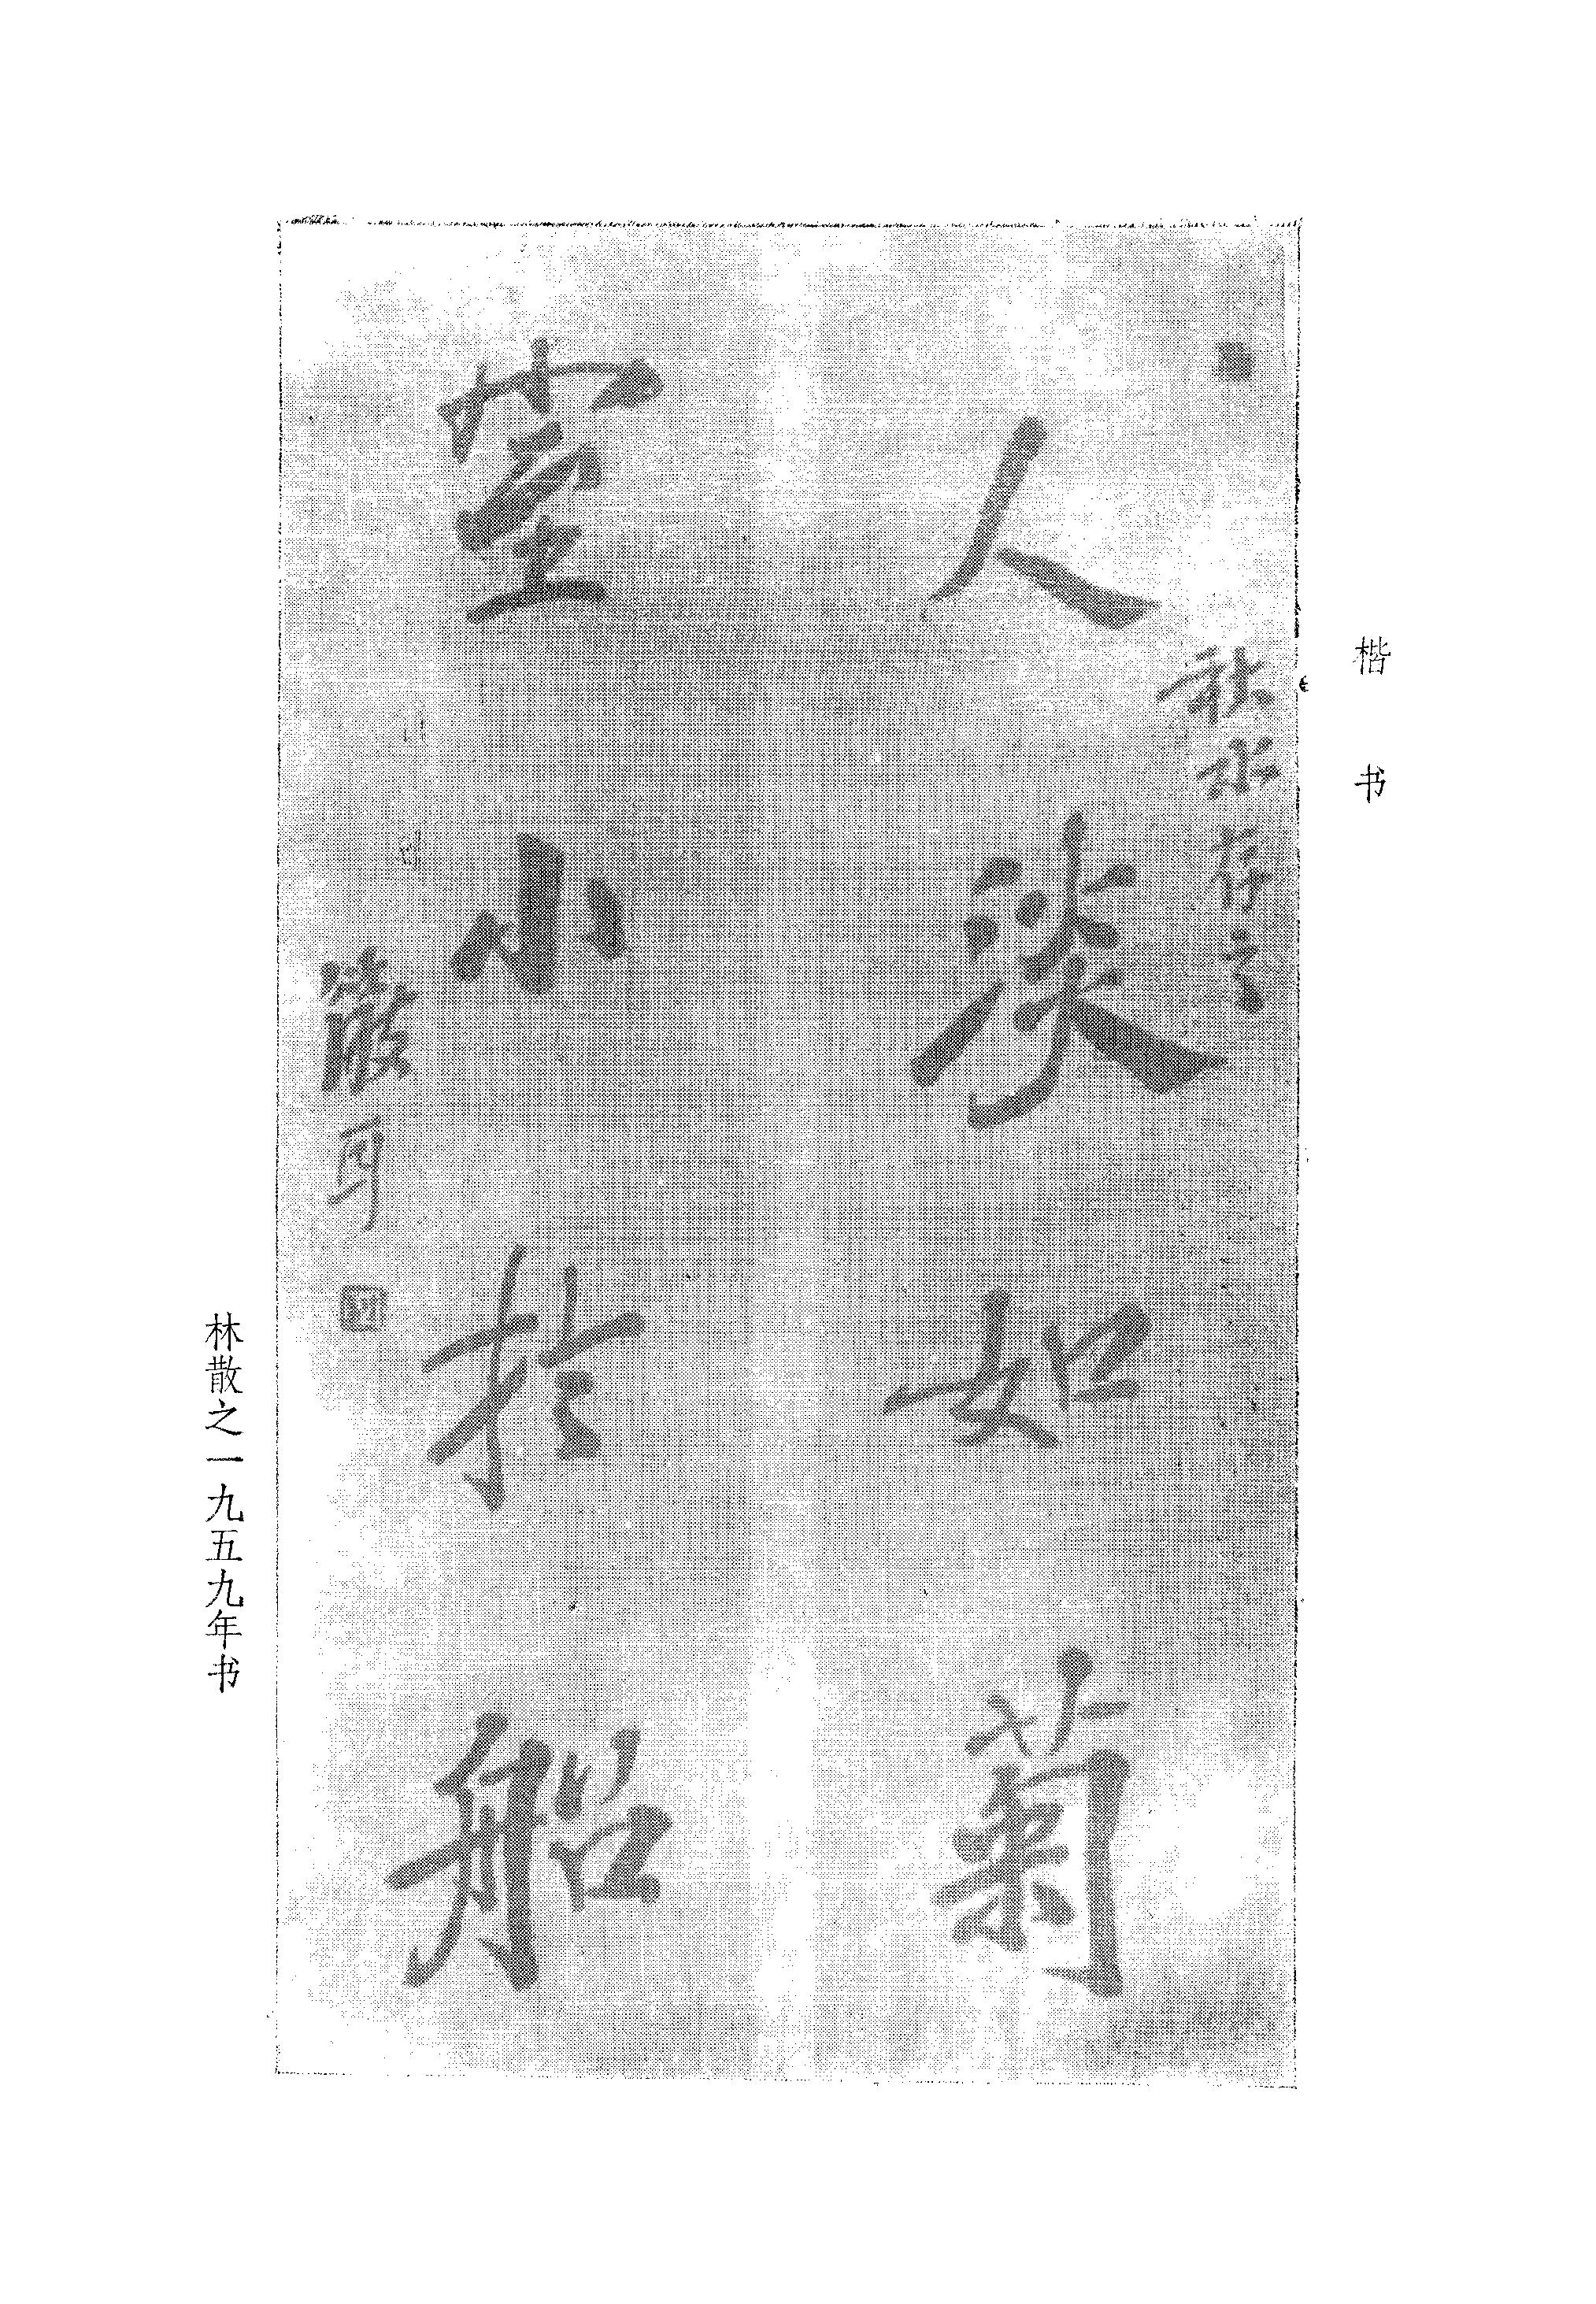 楷书
秋水存之
人淡如菊
室小于船
散耳
林散之一九五九年书